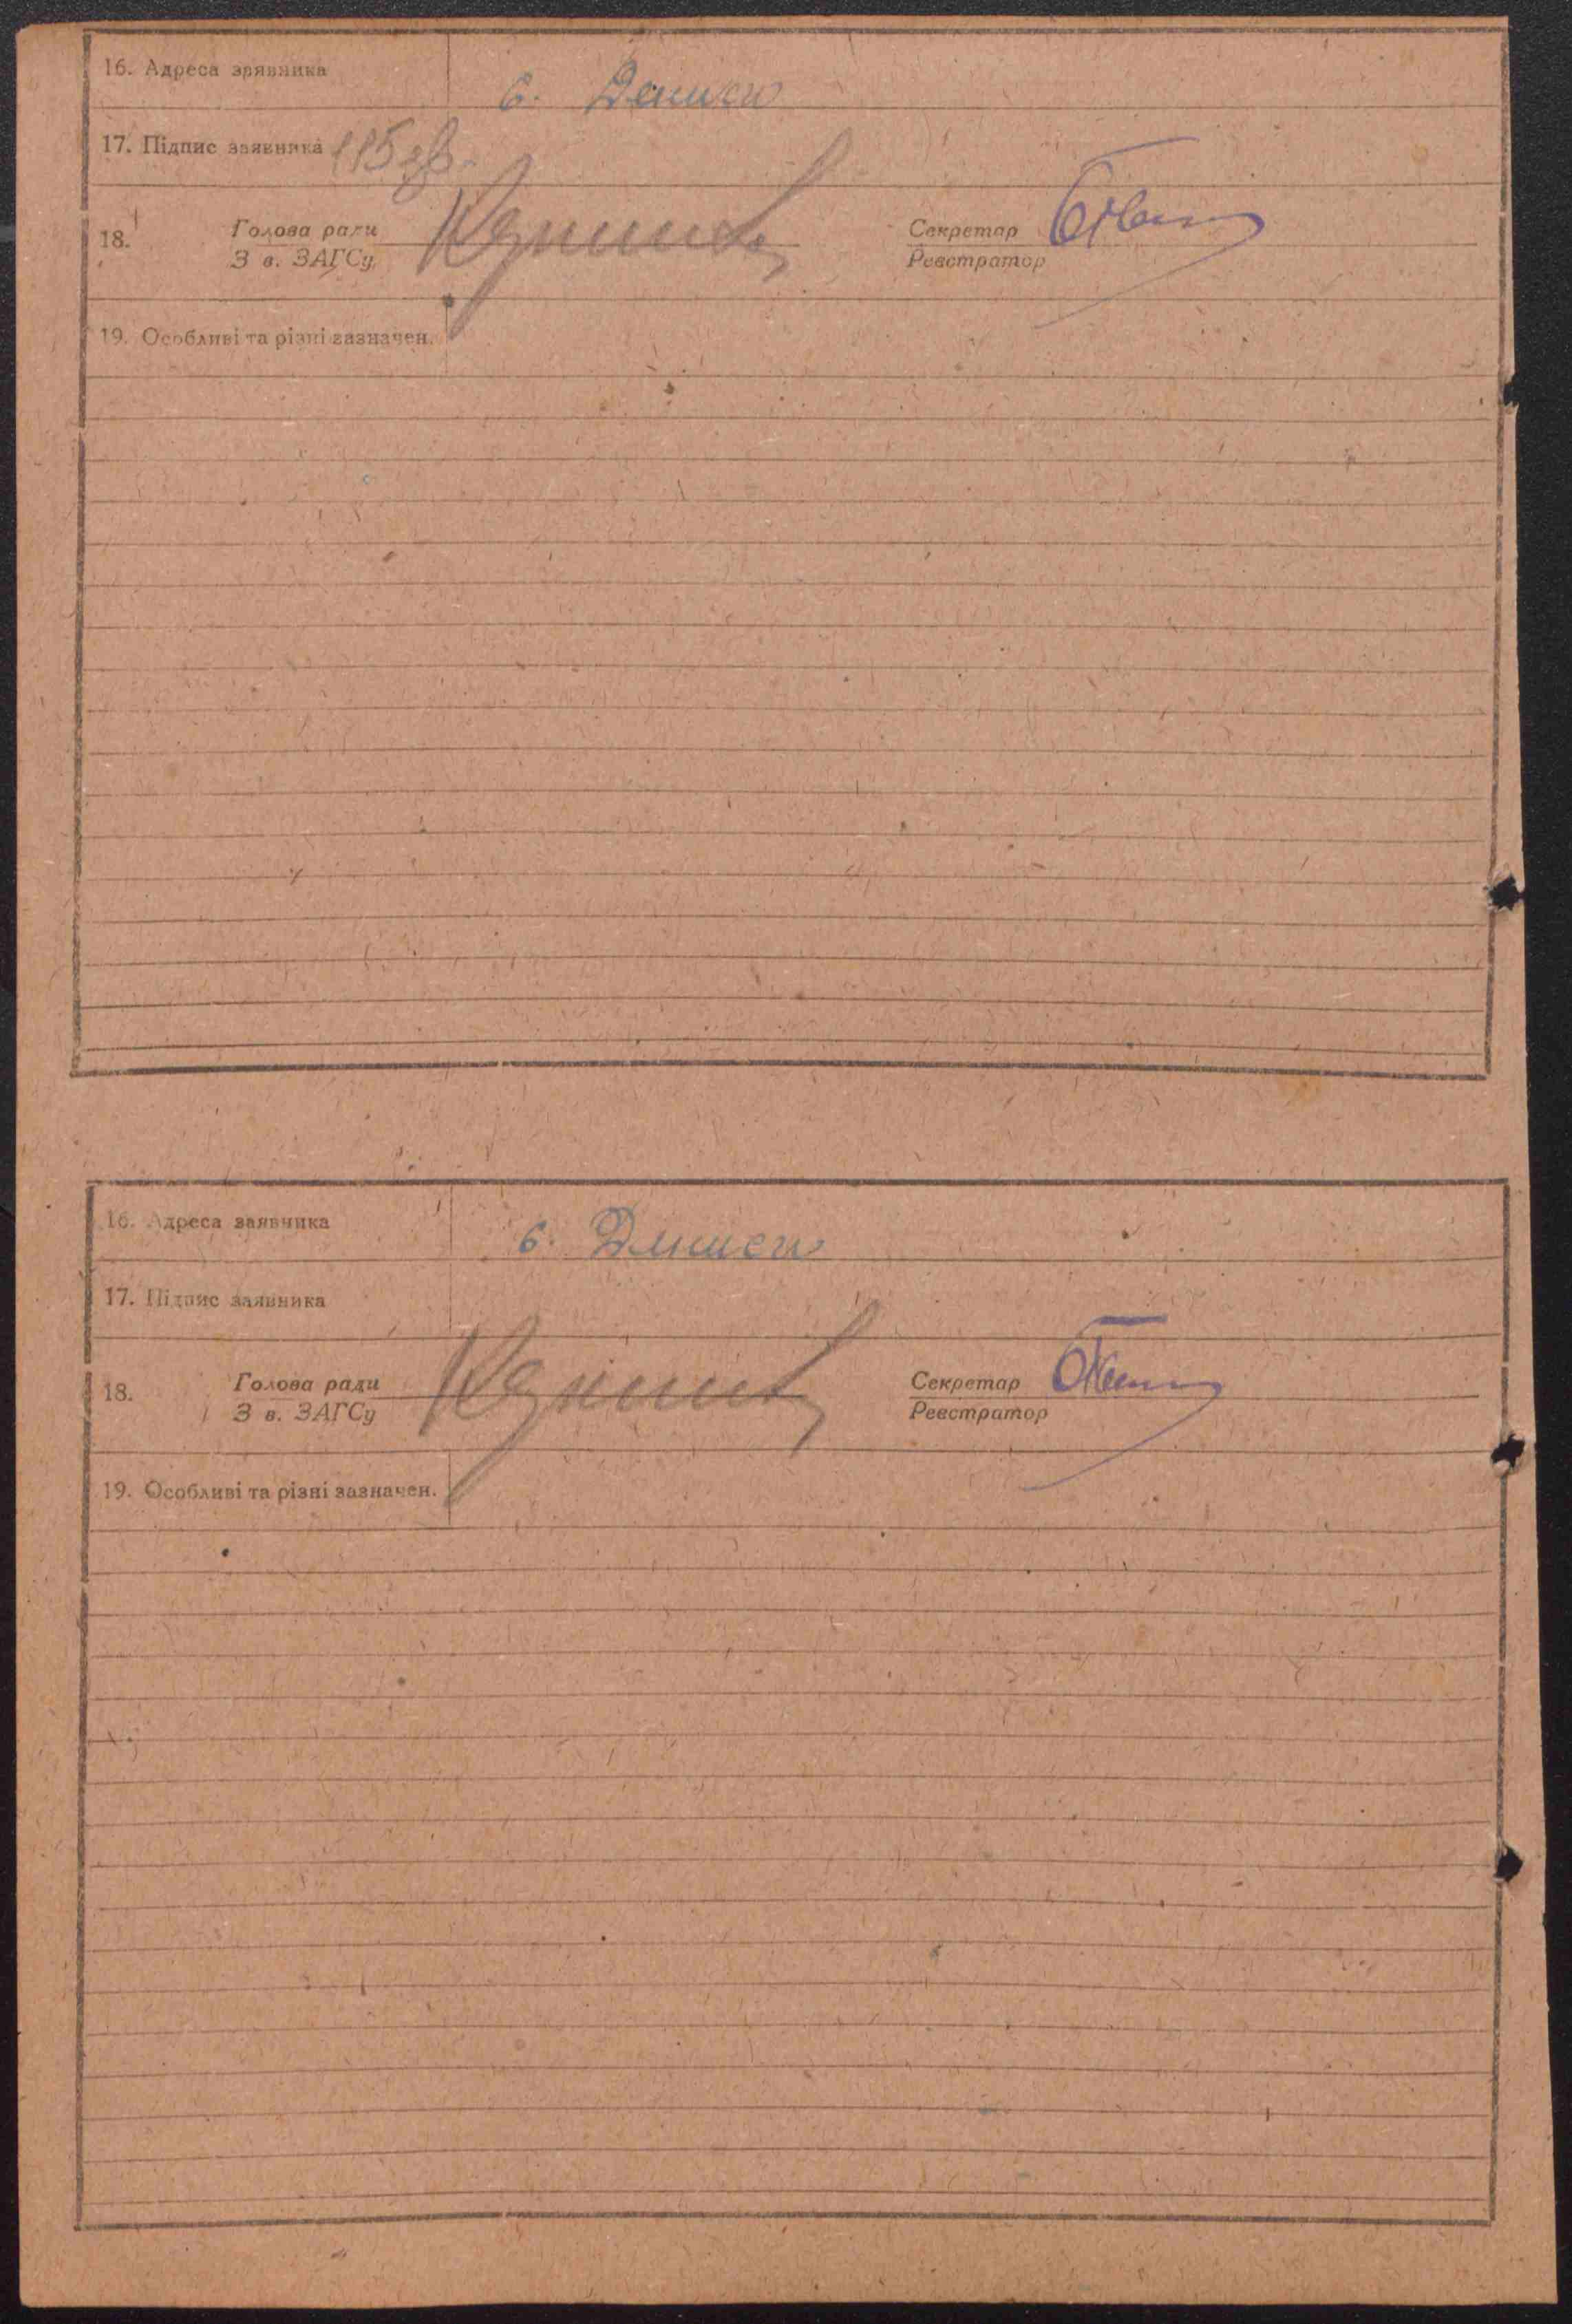 16. Адреса зрявника с. Дениси
17. Підпис заявника
18. Голова ради Секретар
З в. ЗАГСу Реєстратор
19. Особливі та різні зазначен.
16. Адреса заявника с. Дениси
17. Підпис заявника
18. Голова ради Секретар
З в. ЗАГСу Реєстратор
19. Особливі та різні зазначен.